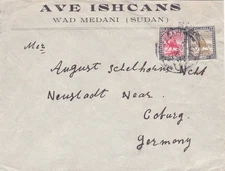 AVE ISHCANS
WAD MEDANI (SUDAN)
Mez
August Schelhorns Nchf
Neustadt Near.
Coburg.
Germany